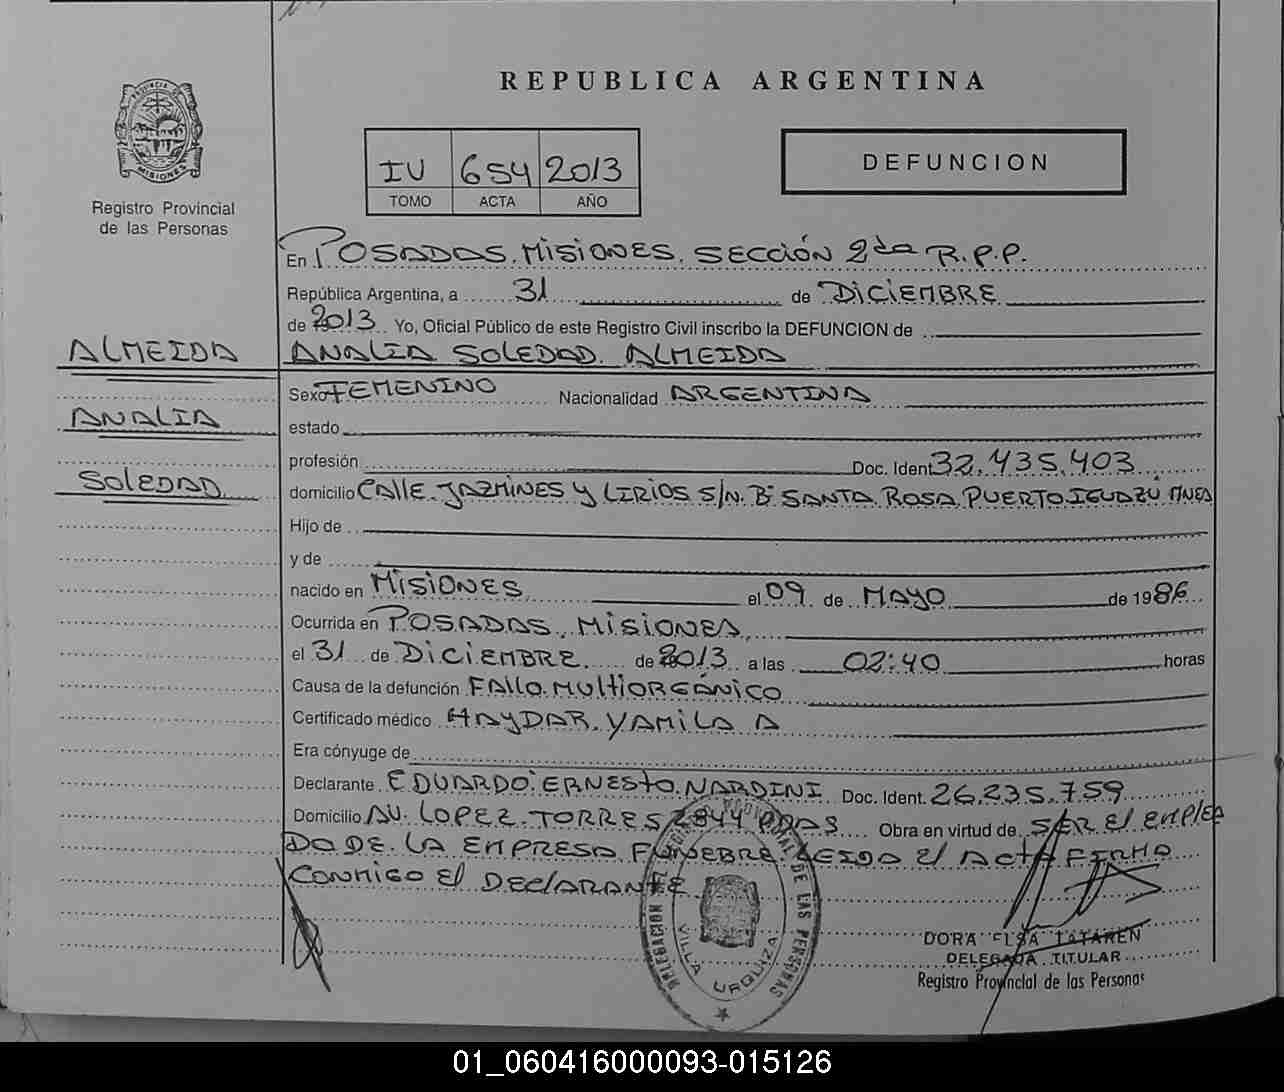 REPUBLICA ARGENTINA
PROVINCIA DE
MISIONES
Registro Provincial
de las Personas
IV 654 2013
TOMO ACTA AÑO
DEFUNCION
En POSADAS. MISIONES. SECCIÓN 2da R.P.P.
República Argentina, a 31 de DICIEMBRE
de 2013 Yo, Oficial Público de este Registro Civil inscribo la DEFUNCION de
ALMEIDA ANALIA SOLEDAD ALMEIDA
Sexo FEMENINO Nacionalidad ARGENTINA
ANALIA
estado
profesión Doc. Ident 32.435.403
SOLEDAD
domicilio CALLE JAZMINES Y LIRIOS S/N. Bº SANTA ROSA PUERTO IGUAZÚ MNES
Hijo de
y de
nacido en MISIONES el 09 de MAYO de 1986
Ocurrida en POSADAS, MISIONES,
el 31 de DICIEMBRE de 2013 a las 02:40 horas
Causa de la defunción FALLO MULTIORGÁNICO
Certificado médico HAYDAR YAMILA A
Era cónyuge de
Declarante EDUARDO ERNESTO NARDINI Doc. Ident. 26.235.759
Domicilio AV. LOPEZ TORRES 2844 PDAS Obra en virtud de SER El EMPLEA
DO DE LA EMPRESA FUNEBRE. LEIDA El ACTA FIRMA
CONMIGO El DECLARANTE
DELEGACION REGISTRO PROVINCIAL DE LAS PERSONAS
VILLA URQUIZA
DORA ELSA TATAREN
DELEGADA TITULAR
Registro Provincial de las Personas
01_060416000093-015126